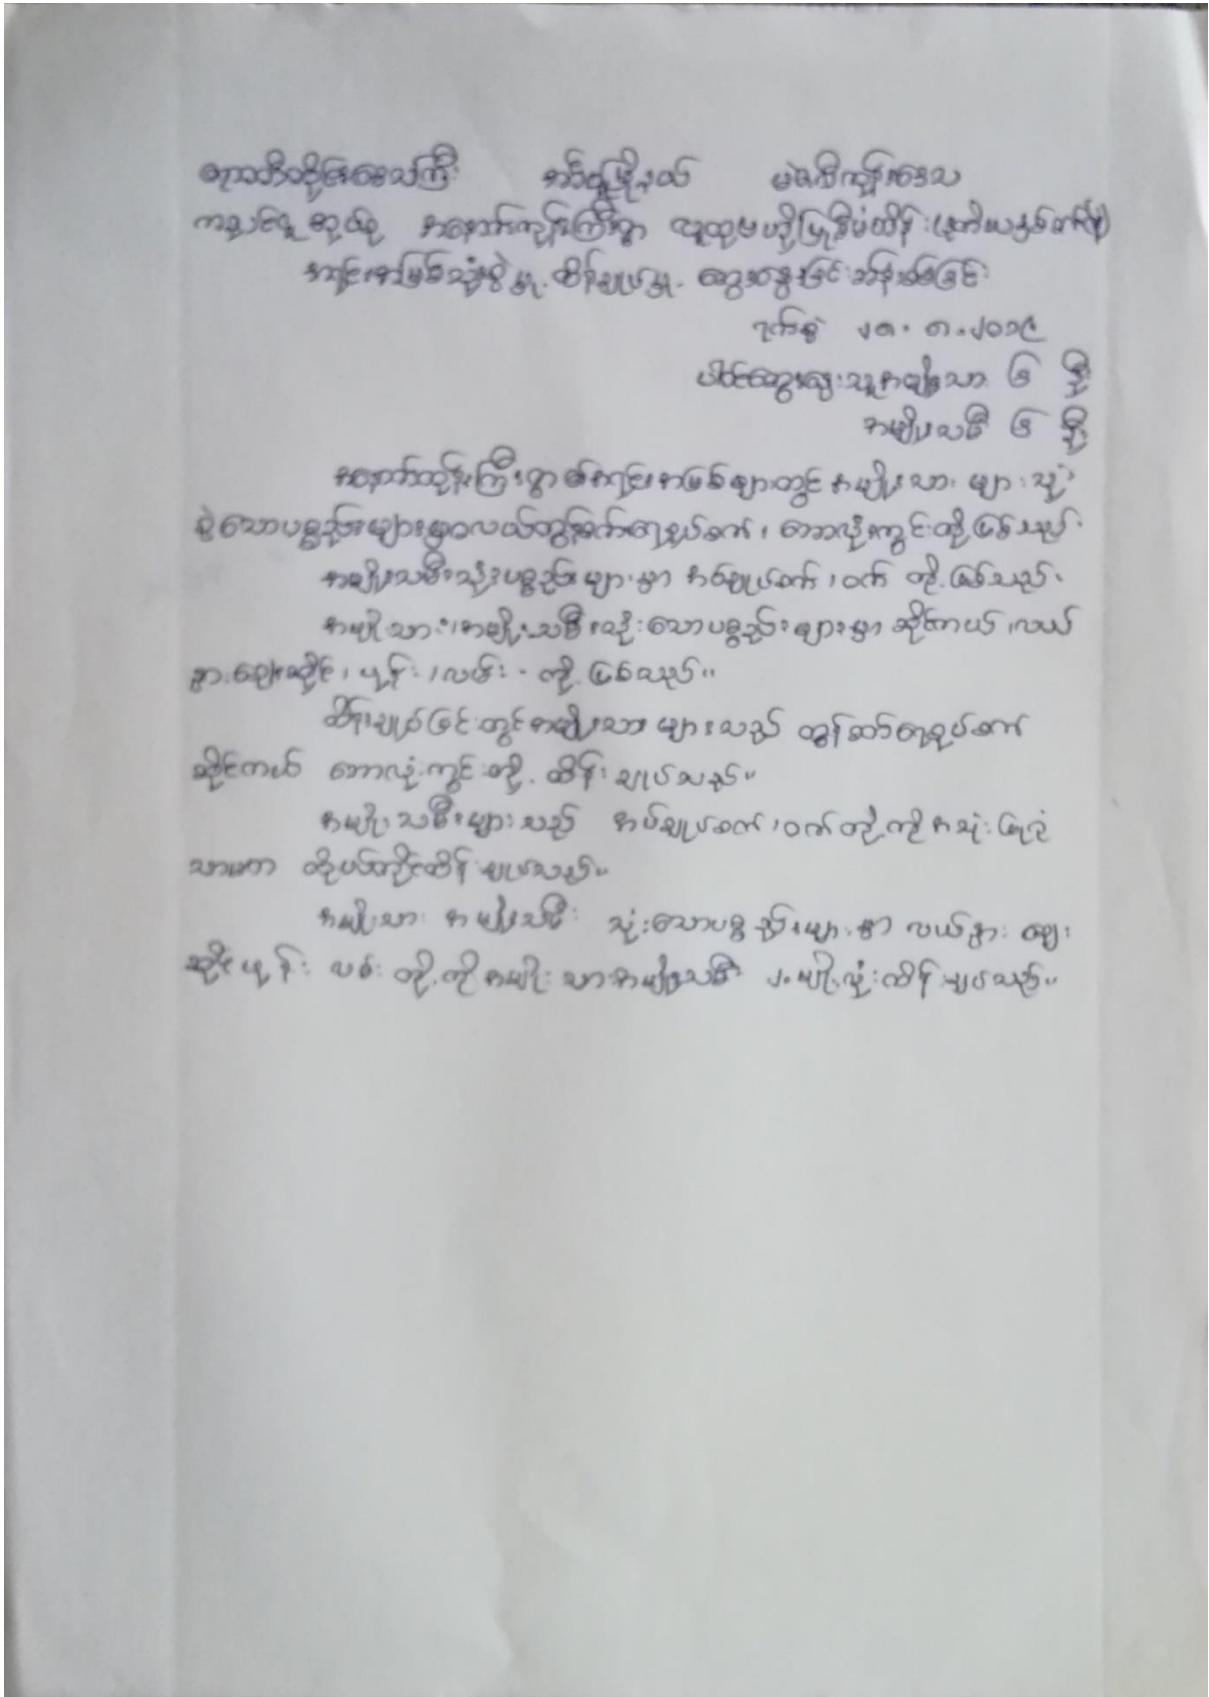 ဧရာဝတီတိုင်းဒေသကြီး မြို့နယ် မဲဇလီကျွန်းဒေသ
အနောက်ကျွန်းကြီးရွာ လူထုဗဟိုပြုဒီမံထိန်း (ဒုတိယနှစ်ဝက်)
အရင်းအမြစ်သုံးစွဲမှု. ထိန်းချုပ်မှု. ဆွေးနွေးခြင်း
ရက်စွဲ ၂၈.၈.၂၀၁၉
ပါဝင်ဆွေးနွေးသူအမျိုးသား ၆ ဦး
အမျိုးသမီး ၆ ဦး
အနောက်ကျွန်းကြီးရွာ၏အရင်းအမြစ်များတွင် အမျိုးသား များ သုံး
စွဲသောပစ္စည်းများမှာလယ်ထွန်စက်ရေစုပ်စက်၊ ဘောလုံးကွင်းတို့ဖြစ်သည်.
အမျိုးသမီးသုံးပစ္စည်းများမှာ အပ်ချုပ်စက်၊ ဝက် တို့ ဖြစ်သည်.
အမျိုးသား၊အမျိုးသမီးသုံးသောပစ္စည်းများမှာ ဆိုင်ကယ် ၊လယ်
နွား၊ဈေးဆိုင်၊ ဖုန်း ၊လမ်း - တို့ ဖြစ်သည်။
ထိန်းချုပ်ခြင်းတွင်အမျိုးသားများသည် ထွန်စက်ရေစုပ်စက်
ဆိုင်ကယ် ဘောလုံးကွင်းတို့. ထိန်းချုပ်သည်။
အမျိုးသမီးများသည် အပ်ချုပ်စက်၊ ဝက်တို့ကိုအသုံးပြုသုံး
ကိုယ်တိုင်ထိန်းချုပ်သည်။
အမျိုးသား အမျိုးသမီး သုံးသောပစ္စည်းများမှာ လယ်နွား ဈေး
ဆိုင် ဖုန်း လမ်း တို့ကို အမျိုးသားအမျိုးသမီး ၂ မျိုးလုံးထိန်းချုပ်သည်။